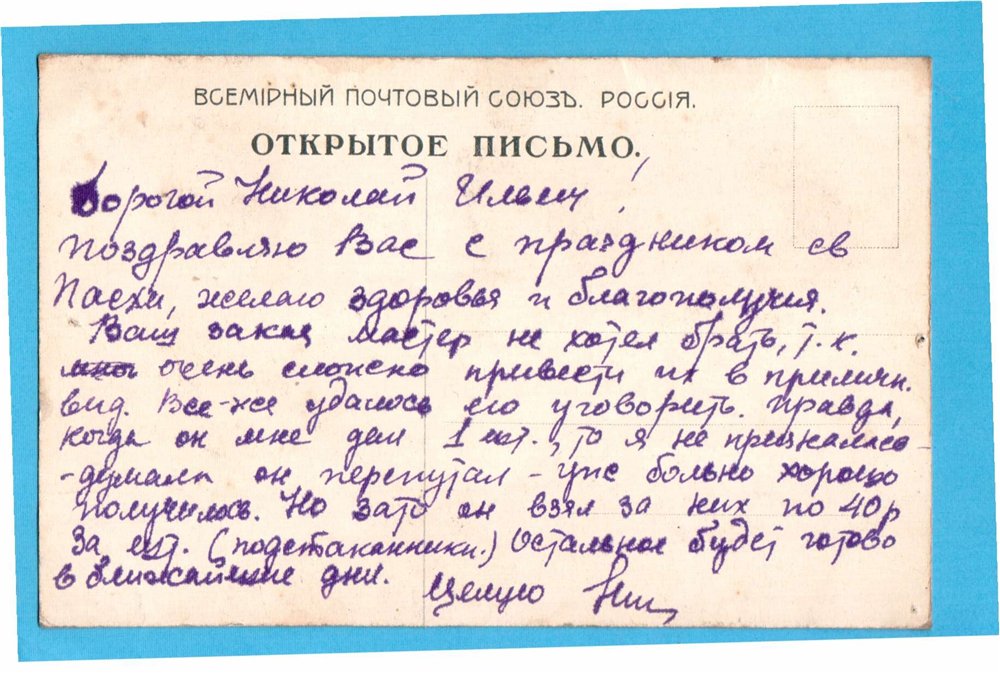 ВСЕМІРНЫЙ ПОЧТОВЫЙ СОЮЗЪ. РОССІЯ.
ОТКРЫТОЕ ПИСЬМО.
Дорогой Николай Ильич!
Поздравляю Вас с праздником св
Пасхи, желаю здоровья и благополучия.
Ваш заказ мастер не хотел брать, т.к.
очень сложно привести их в приличн.
вид. Все-же удалось его уговорить. Правда,
когда он мне дал 1 шт., то я не призналась
-думала он перепутал - уж больно хорошо
получилось. Но зато он взял за них по 40р
За шт. (подстаканники.) Остальное будет готово
в ближайшие дни. Целую